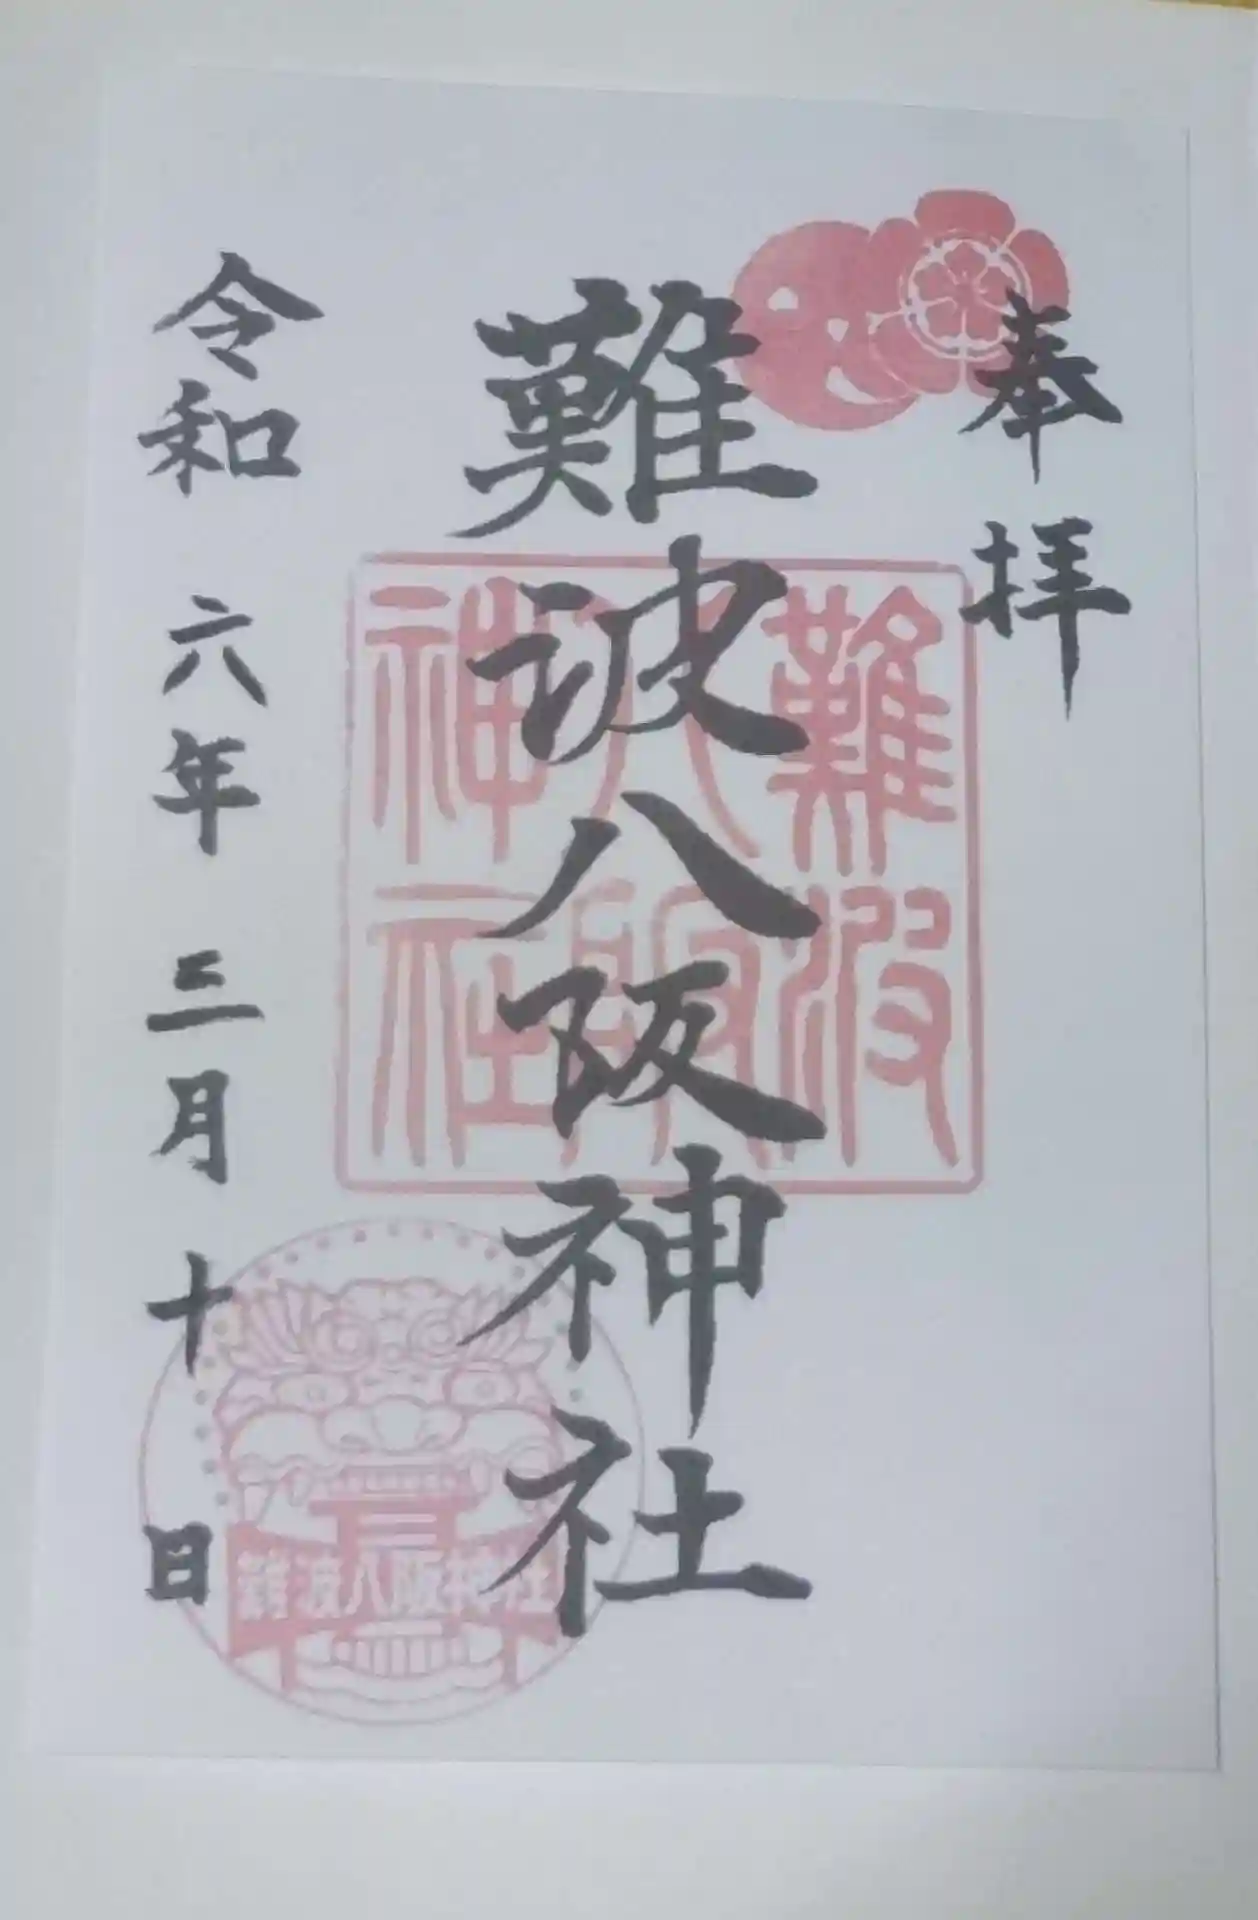 奉拝
難波八阪神社
令和六年三月十日
難波八阪神社
難波八阪神社